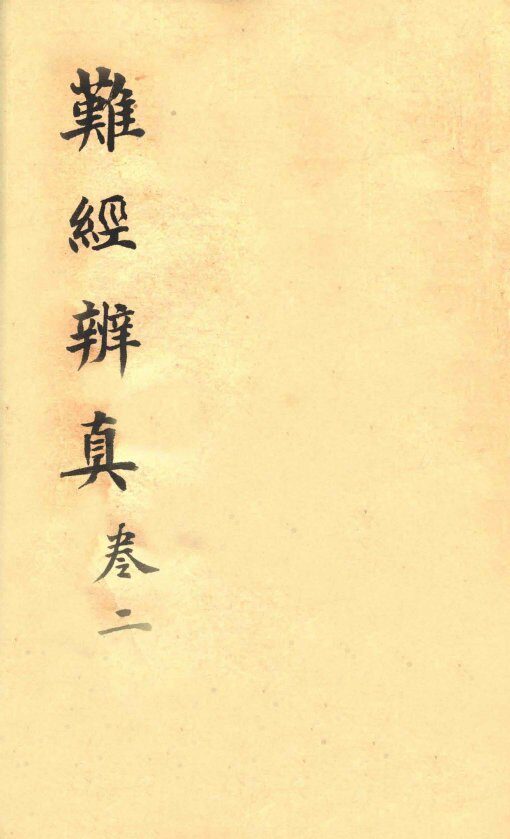 難經辨真卷二